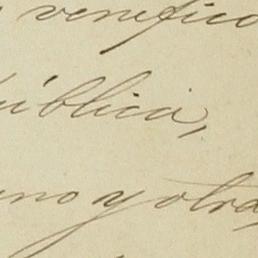 venefico
ública,
uno y otra,